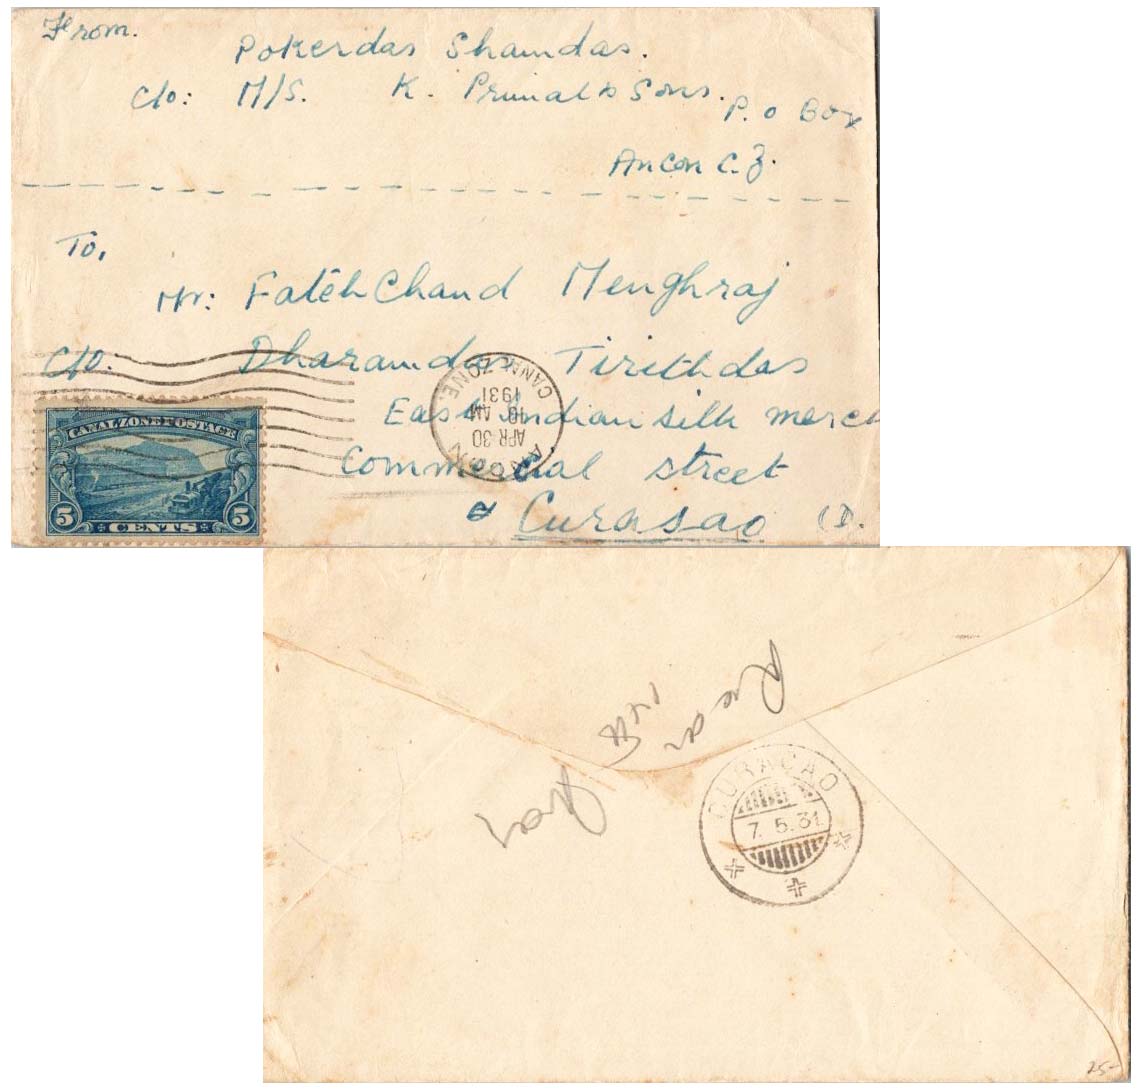 From.
Pokerdas Shamdas.
c/o: M/S. K. Primal & Sons.
P. o Box
Ancon C. Z.
To,
Mr: Fatehchand Menghraj
c/o. Dharamdas Tirithdas
East Indian silk merch
Commercial street
Curasao (D.
ANCON
APR 30
10 AM
1931
CANAL ZONE.
CANAL ZONE POSTAGE
5 CENTS 5
CURACAO
7.5.31
25-